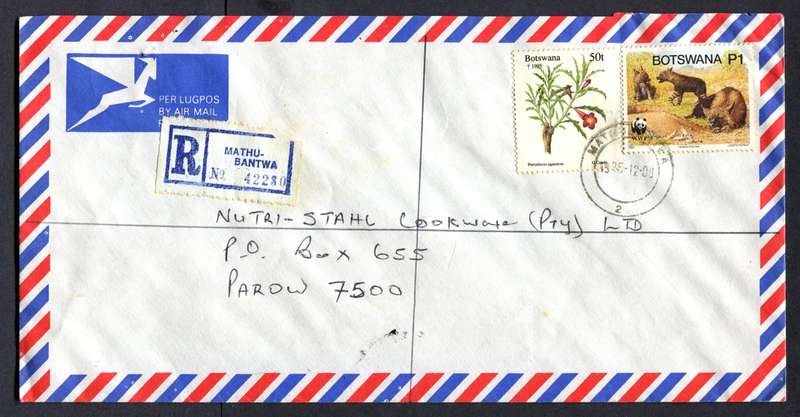 PER LUGPOS
BY AIR MAIL
R
MATHU-
BANTWA
No 42280
Botswana 50t
1995
BOTSWANA P1
WWF
2
NUTRI-STAHL Cookware (Pty) LTD
P.O. Box 655
PAROW 7500